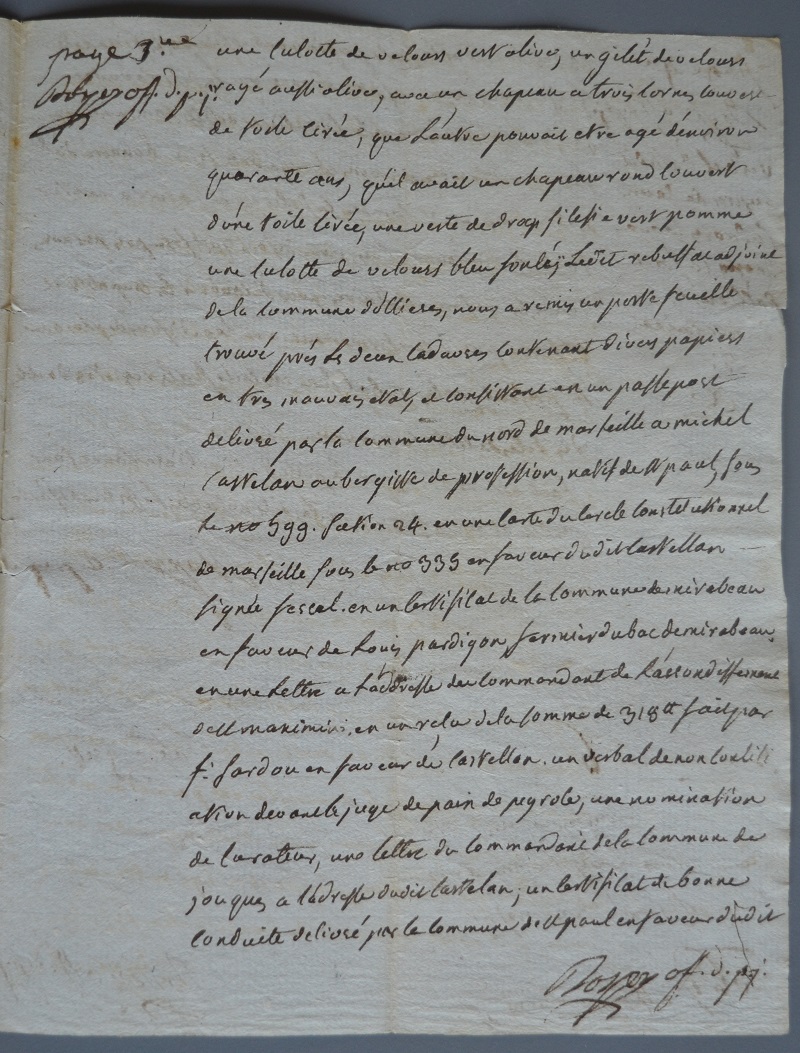 page 3.me
Boyer off. d. p. j.
une culotte de velours vert olive, un gilet de velours
rayé aussi olive, avec un chapeau a trois cornes couvert
de toile cirée, que L'autre pouvait etre agé d'environ
quarante ans, qu'il avait un chapeau rond couvert
d'une toile cirée, une veste de drap silesie vert pomme
une culotte de velours bleu foncé; Ledit rebuffat adjoint
de la commune d'ollieres, nous a remis un porte feuille
trouvé prés Les deux cadavres contenant divers papiers
en tres mauvais etat, et consistant en un passeport
delivré par la commune du nord de marseille a michel
Castelan aubergiste de profession, natif de st paul, sous
Le no 599. section 24. en une carte du cercle constitutionnel
de marseille sous le no 335 en faveur dudit Castellan
signée fescal. en un certificat de la commune de mirabeau
en faveur de Louis pardigon fermier du bac de mirabeau,
en une Lettre a L'addresse du commandant de L'arrondissement
de st maximin, en un reçu de la somme de 318 tt fait par
f. Sardou en faveur de Castellan. un verbal de non concili
ation devant le juge de paix de peyrole, une nomination
de curateur, une lettre du commandant de la commune de
jouques a l'adresse dudit Castelan; un certificat de bonne
conduite delivré par la commune de st paul en faveur dudit
Boyer off. d. p. j.